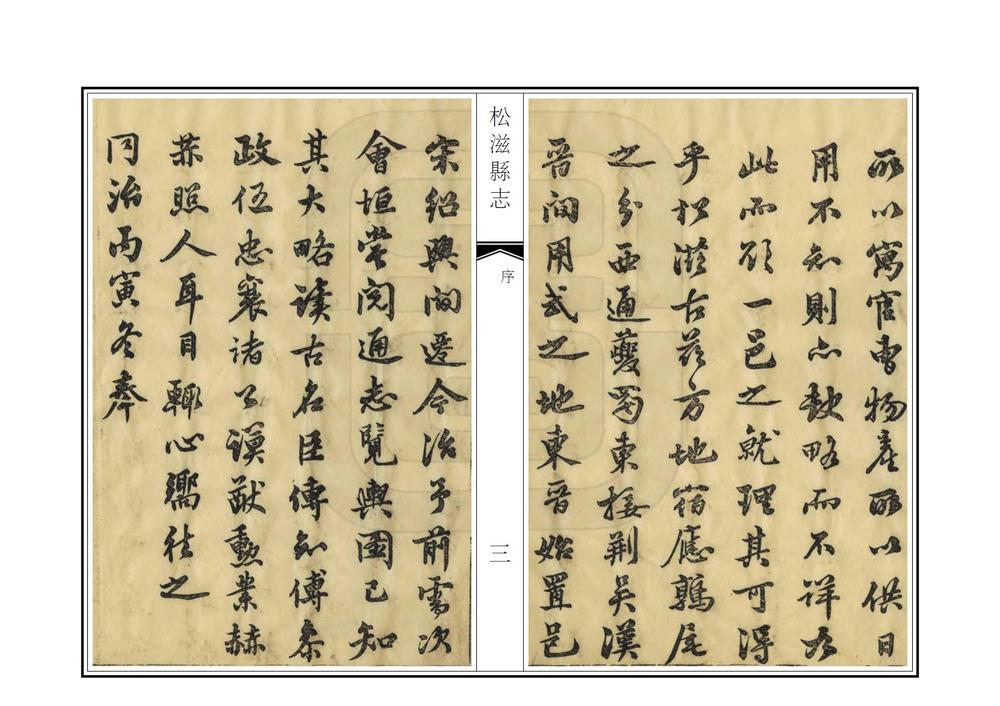 所以寓官曹物產所以供日
用不知則亦缺略而不詳如
此而欲一邑之就理其可得
乎松滋古茲方地宿應鶉尾
之分西通夔蜀東接荊吳漢
晉間用武之地東晉始置邑
松滋縣志
序
三
宋紹興間遷今治予前需次
會垣嘗閱通志覽輿圖已知
其大略讀古名臣傳知傅參
政伍忠襄諸公謨猷勳業赫
赫照人耳目輒心嚮往之
同治丙寅冬奉